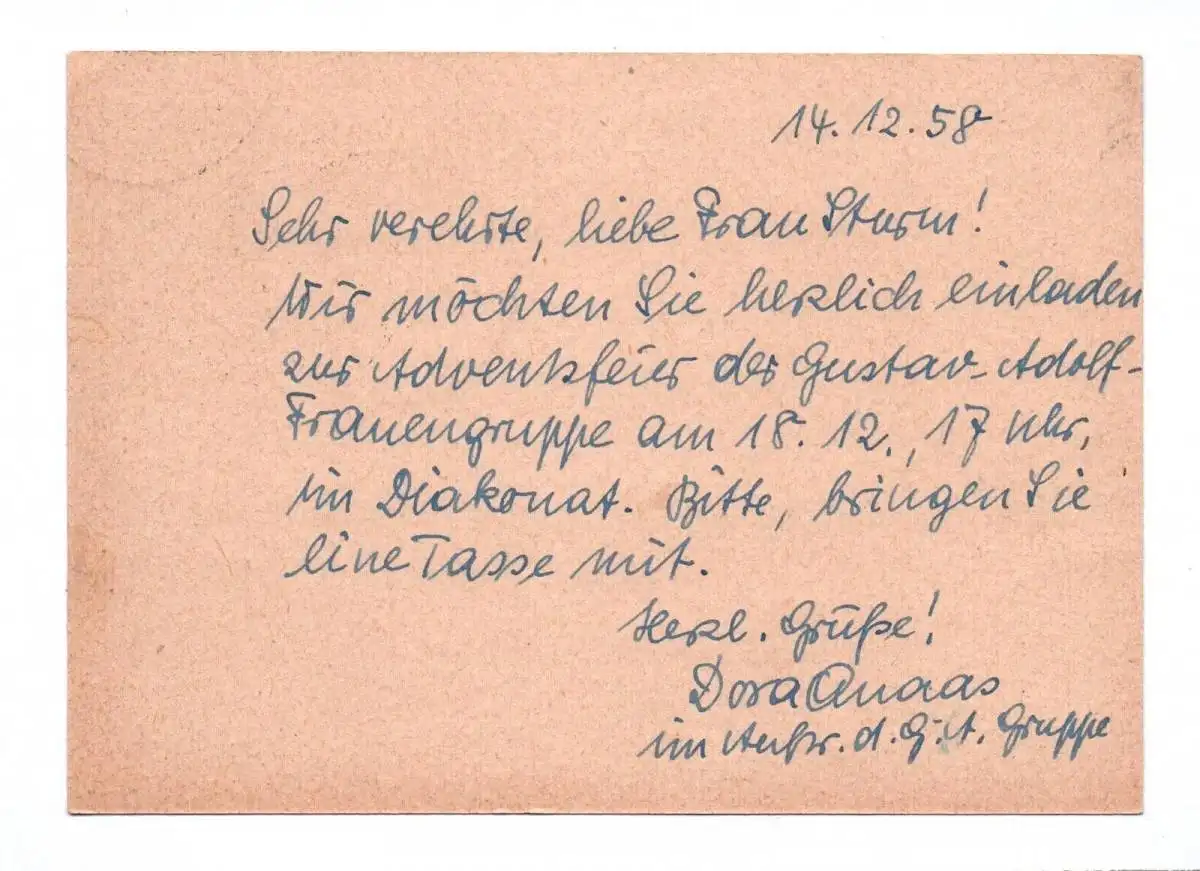 14. 12. 58
Sehr verehrte, liebe Frau Sturm!
Wir möchten Sie herzlich einladen
zur Adventsfeier der Gustav-Adolf-
Frauengruppe am 18. 12., 17 Uhr,
im Diakonat. Bitte, bringen Sie
eine Tasse mit.
Herzl. Grüße!
Dora
im Auftr. d. G. A. Gruppe